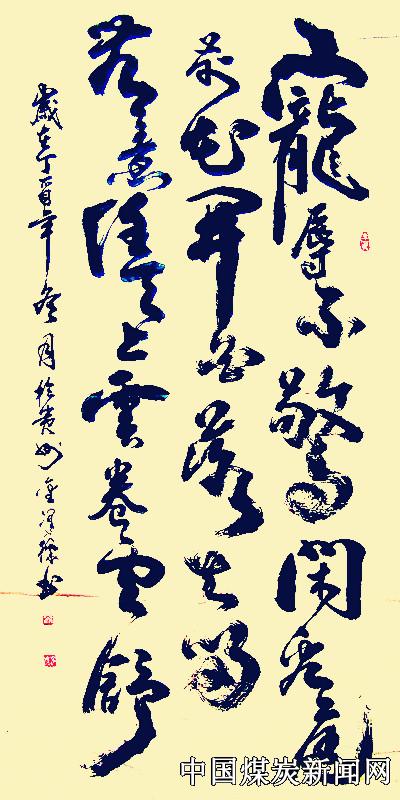 寵辱不驚閑看庭
前花開花落去留
無意隨天上雲卷雲舒
歲在丁酉年冬月於貴州金書
中国煤炭新闻网